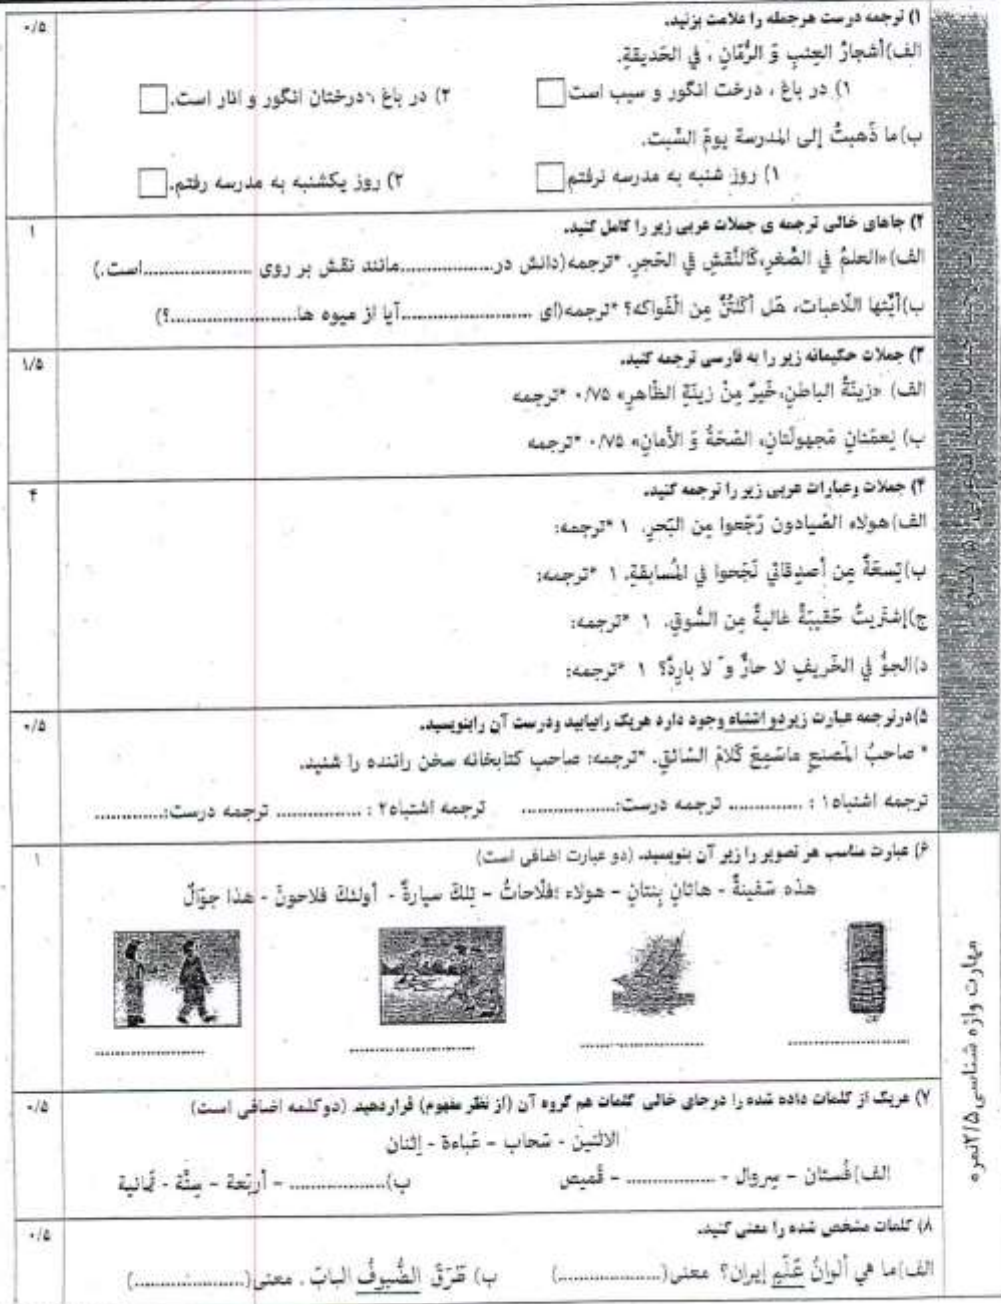 ۱) ترجمه درست هرجمله را علامت بزنید.
۰/۵
الف)أشجارُ العِنَبِ وَ الرُّمّانِ ، في الحَديقةِ.
۱) در باغ ، درخت انگور و سیب است
۲) در باغ ،درختان انگور و انار است.
ب)ما ذَهبتُ إلى المدرسة يومَ السَّبت.
۱) روز شنبه به مدرسه نرفتم
۲) روز یکشنبه به مدرسه رفتم.
۲) جاهای خالی ترجمه ی جملات عربی زیر را کامل کنید.
۱
الف)«العلمُ في الصِّغرِ،كَالنَّقشِ في الحَجرِ. *ترجمه(دانش در..................مانند نقش بر روی ..................است.)
ب)أيَّتها اللّاعبات، هَل أكَلتُنَّ مِن الْفَواكه؟ *ترجمه(ای ......................آیا از میوه ها......................؟)
۳) جملات حکیمانه زیر را به فارسی ترجمه کنید.
۱/۵
الف) «زينَةُ الباطنِ،خَيرٌ مِنْ زينَةِ الظّاهرِ» ۰/۷۵ *ترجمه
ب) نِعمَتانِ مَجهولَتانِ، الصِّحَةُ وَ الأَمانِ» ۰/۷۵ *ترجمه
۴) جملات وعبارات عربی زیر را ترجمه کنید.
۴
الف)هولاء الصَّيادون رَجَعوا مِن البَحرِ. ۱ *ترجمه:
ب)تِسعَةٌ مِن أصدِقائي نَجَحوا في المُسابقةِ. ۱ *ترجمه:
ج)إشتَريتُ حَقيبَةً غاليةً مِن السُّوقِ. ۱ *ترجمه:
د)الجوُّ في الخَريفِ لا حارٌّ وَ لا بارِدٌ؟ ۱ *ترجمه:
۵)درترجمه عبارت زیردو اشتباه وجود دارد هریک رابیابید ودرست آن رابنویسید.
۰/۵
* صاحبُ المَصنعِ ماسَمِعَ كَلامَ السّائقِ. *ترجمه: صاحب کتابخانه سخن راننده را شنید.
ترجمه اشتباه۱ : .............. ترجمه درست:.................. ترجمه اشتباه۲ : ................ ترجمه درست:..............
۶) عبارت مناسب هر تصویر را زیر آن بنویسید. (دو عبارت اضافی است)
۱
هذه سَفينةٌ - هاتانِ بِنتانِ - هولاء ;فلّاحاتُ - تِلكَ سيارةٌ - أولئكَ فلاحونَ - هذا جوّالٌ
۷) هریک از کلمات داده شده را درجای خالی کلمات هم گروه آن (از نظر مفهوم) قراردهید. (دوکلمه اضافی است)
۰/۵
الاثنين - سَحاب - عَباءة - إثنان
الف)فُستان - سِروال - ................ - قَميص
ب)................. - أربَعة - سِتَّة - ثَمانية
۸) کلمات مشخص شده را معنی کنید.
۰/۵
الف)ما هي ألوانُ عَلَمِ إيران؟ معنی(....................)
ب) طَرَقَ الضُّيوفُ البابَ . معنی(....................)
مهارت واژه شناسی۲/۵نمره